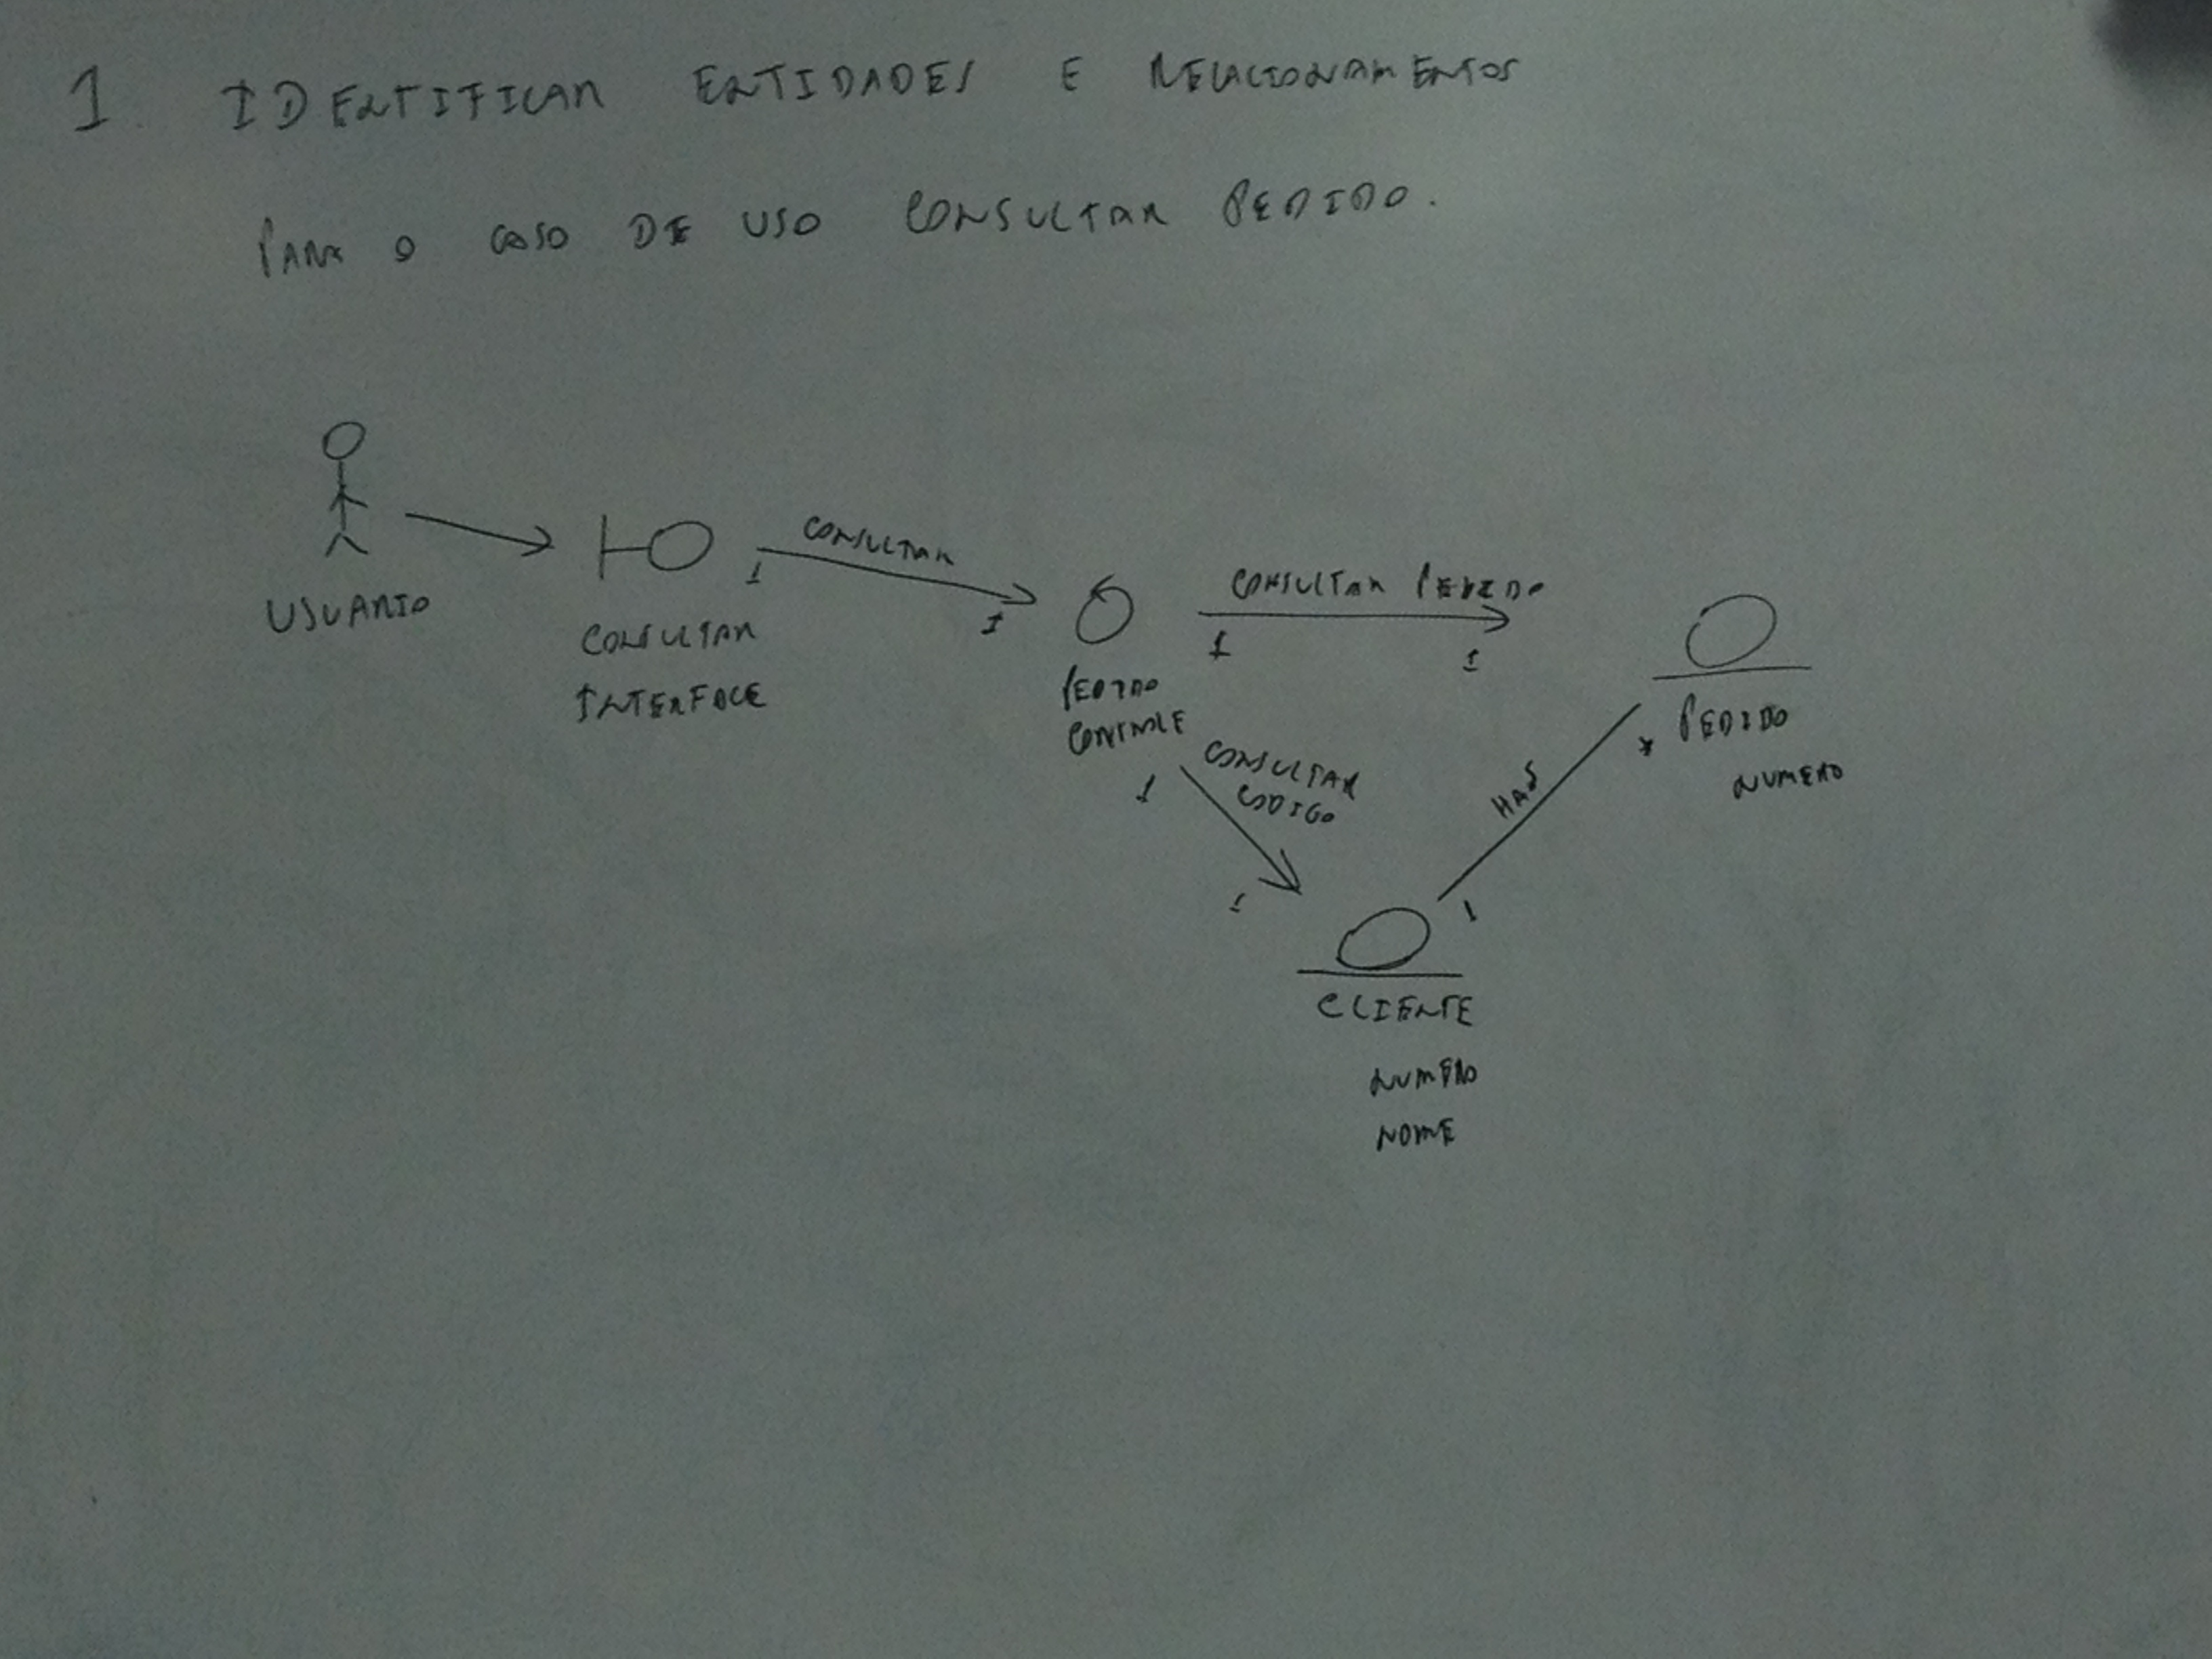 1. IDENTIFICAR ENTIDADES E RELACIONAMENTOS
PARA O CASO DE USO CONSULTAR PEDIDO.
USUARIO
CONSULTAR
INTERFACE
CONSULTAR
1
1
PEDIDO
CONTROLE
CONSULTAR PEDIDO
1
1
CONSULTAR
CODIGO
1
1
PEDIDO
NUMERO
*
HAS
1
CLIENTE
NUMERO
NOME